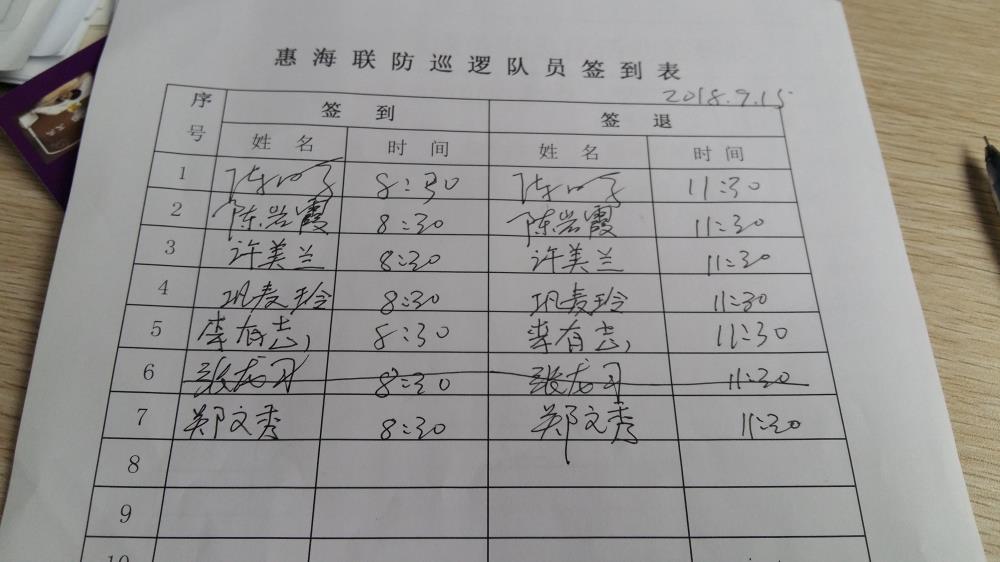 惠海联防巡逻队员签到表
2018.9.15
序号 签到 签退
姓名 时间 姓名 时间
1 8:30 11:30
2 陈岩霞 8:30 陈岩霞 11:30
3 许美兰 8:30 许美兰 11:30
4 巩麦玲 8:30 巩麦玲 11:30
5 李有志 8:30 李有志 11:30
6 8:30 11:30
7 郑文秀 8:30 郑文秀 11:30
8
9
10